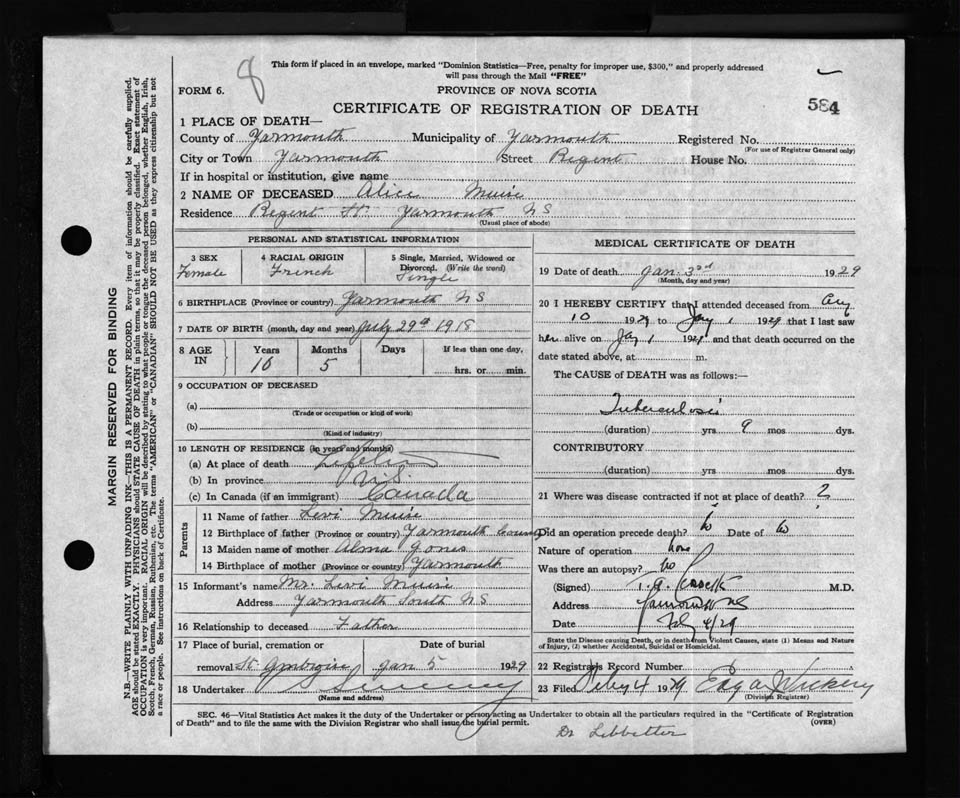 8
This form if placed in an envelope, marked "Dominion Statistics—Free, penalty for improper use, $300," and properly addressed
will pass through the Mail "FREE"
FORM 6.
PROVINCE OF NOVA SCOTIA
CERTIFICATE OF REGISTRATION OF DEATH
584
1 PLACE OF DEATH—
County of Yarmouth Municipality of Yarmouth Registered No.
(For use of Registrar General only)
City or Town Yarmouth Street Regent House No.
If in hospital or institution, give name
2 NAME OF DECEASED Alice Muise
Residence Regent St. Yarmouth NS
(Usual place of abode)
PERSONAL AND STATISTICAL INFORMATION
3 SEX Female
4 RACIAL ORIGIN French
5 Single, Married, Widowed or
Divorced. (Write the word)
Single
6 BIRTHPLACE (Province or country) Yarmouth NS
7 DATE OF BIRTH (month, day and year) July 29th 1918
8 AGE IN Years Months Days If less than one day,
10 5 hrs. or min.
9 OCCUPATION OF DECEASED
(a)
(Trade or occupation or kind of work)
(b)
(Kind of industry)
10 LENGTH OF RESIDENCE (in years and months)
(a) At place of death Lifetime
(b) In province N.S.
(c) In Canada (if an immigrant) Canada
Parents
11 Name of father Levi Muise
12 Birthplace of father (Province or country) Yarmouth County
13 Maiden name of mother Alma Jones
14 Birthplace of mother (Province or country) Yarmouth
15 Informant's name Mr. Levi Muise
Address Yarmouth South NS
16 Relationship to deceased Father
17 Place of burial, cremation or Date of burial
removal St. Ambroise Jan 5 1929
18 Undertaker
(Name and address)
MEDICAL CERTIFICATE OF DEATH
19 Date of death Jan. 3rd 1929
(Month, day and year)
20 I HEREBY CERTIFY that I attended deceased from
10 to Jany 1 1929 that I last saw
her alive on Jany 1 1929 and that death occurred on the
date stated above, at m.
The CAUSE of DEATH was as follows:—
Tuberculosis
(duration) yrs 9 mos dys.
CONTRIBUTORY
(duration) yrs mos dys.
21 Where was disease contracted if not at place of death? ?
Did an operation precede death? No Date of No
Nature of operation none
Was there an autopsy? No
(Signed) M.D.
Address Yarmouth NS
Date 4/29
State the Disease causing Death, or in death from Violent Causes, state (1) Means and Nature
of Injury, (2) whether Accidental, Suicidal or Homicidal.
22 Registrars Record Number
23 Filed Feby 4 1929
(Division Registrar)
SEC. 46—Vital Statistics Act makes it the duty of the Undertaker or person acting as Undertaker to obtain all the particulars required in the "Certificate of Registration
of Death" and to file the same with the Division Registrar who shall issue the burial permit.
(OVER)
Dr Lebbetter
MARGIN RESERVED FOR BINDING
N.B.—WRITE PLAINLY WITH UNFADING INK—THIS IS A PERMANENT RECORD. Every item of information should be carefully supplied.
AGE should be stated EXACTLY. PHYSICIANS should STATE CAUSE OF DEATH in plain terms, so that it may be properly classified. Exact statement of
OCCUPATION is very important. RACIAL ORIGIN will be described by stating to what people or tongue the deceased person belonged, whether English, Irish,
Scotch, French, German, Russian, Ruthenian, etc. The terms "AMERICAN" or "CANADIAN" SHOULD NOT BE USED as they express citizenship but not
a race or people. See instructions on back of Certificate.